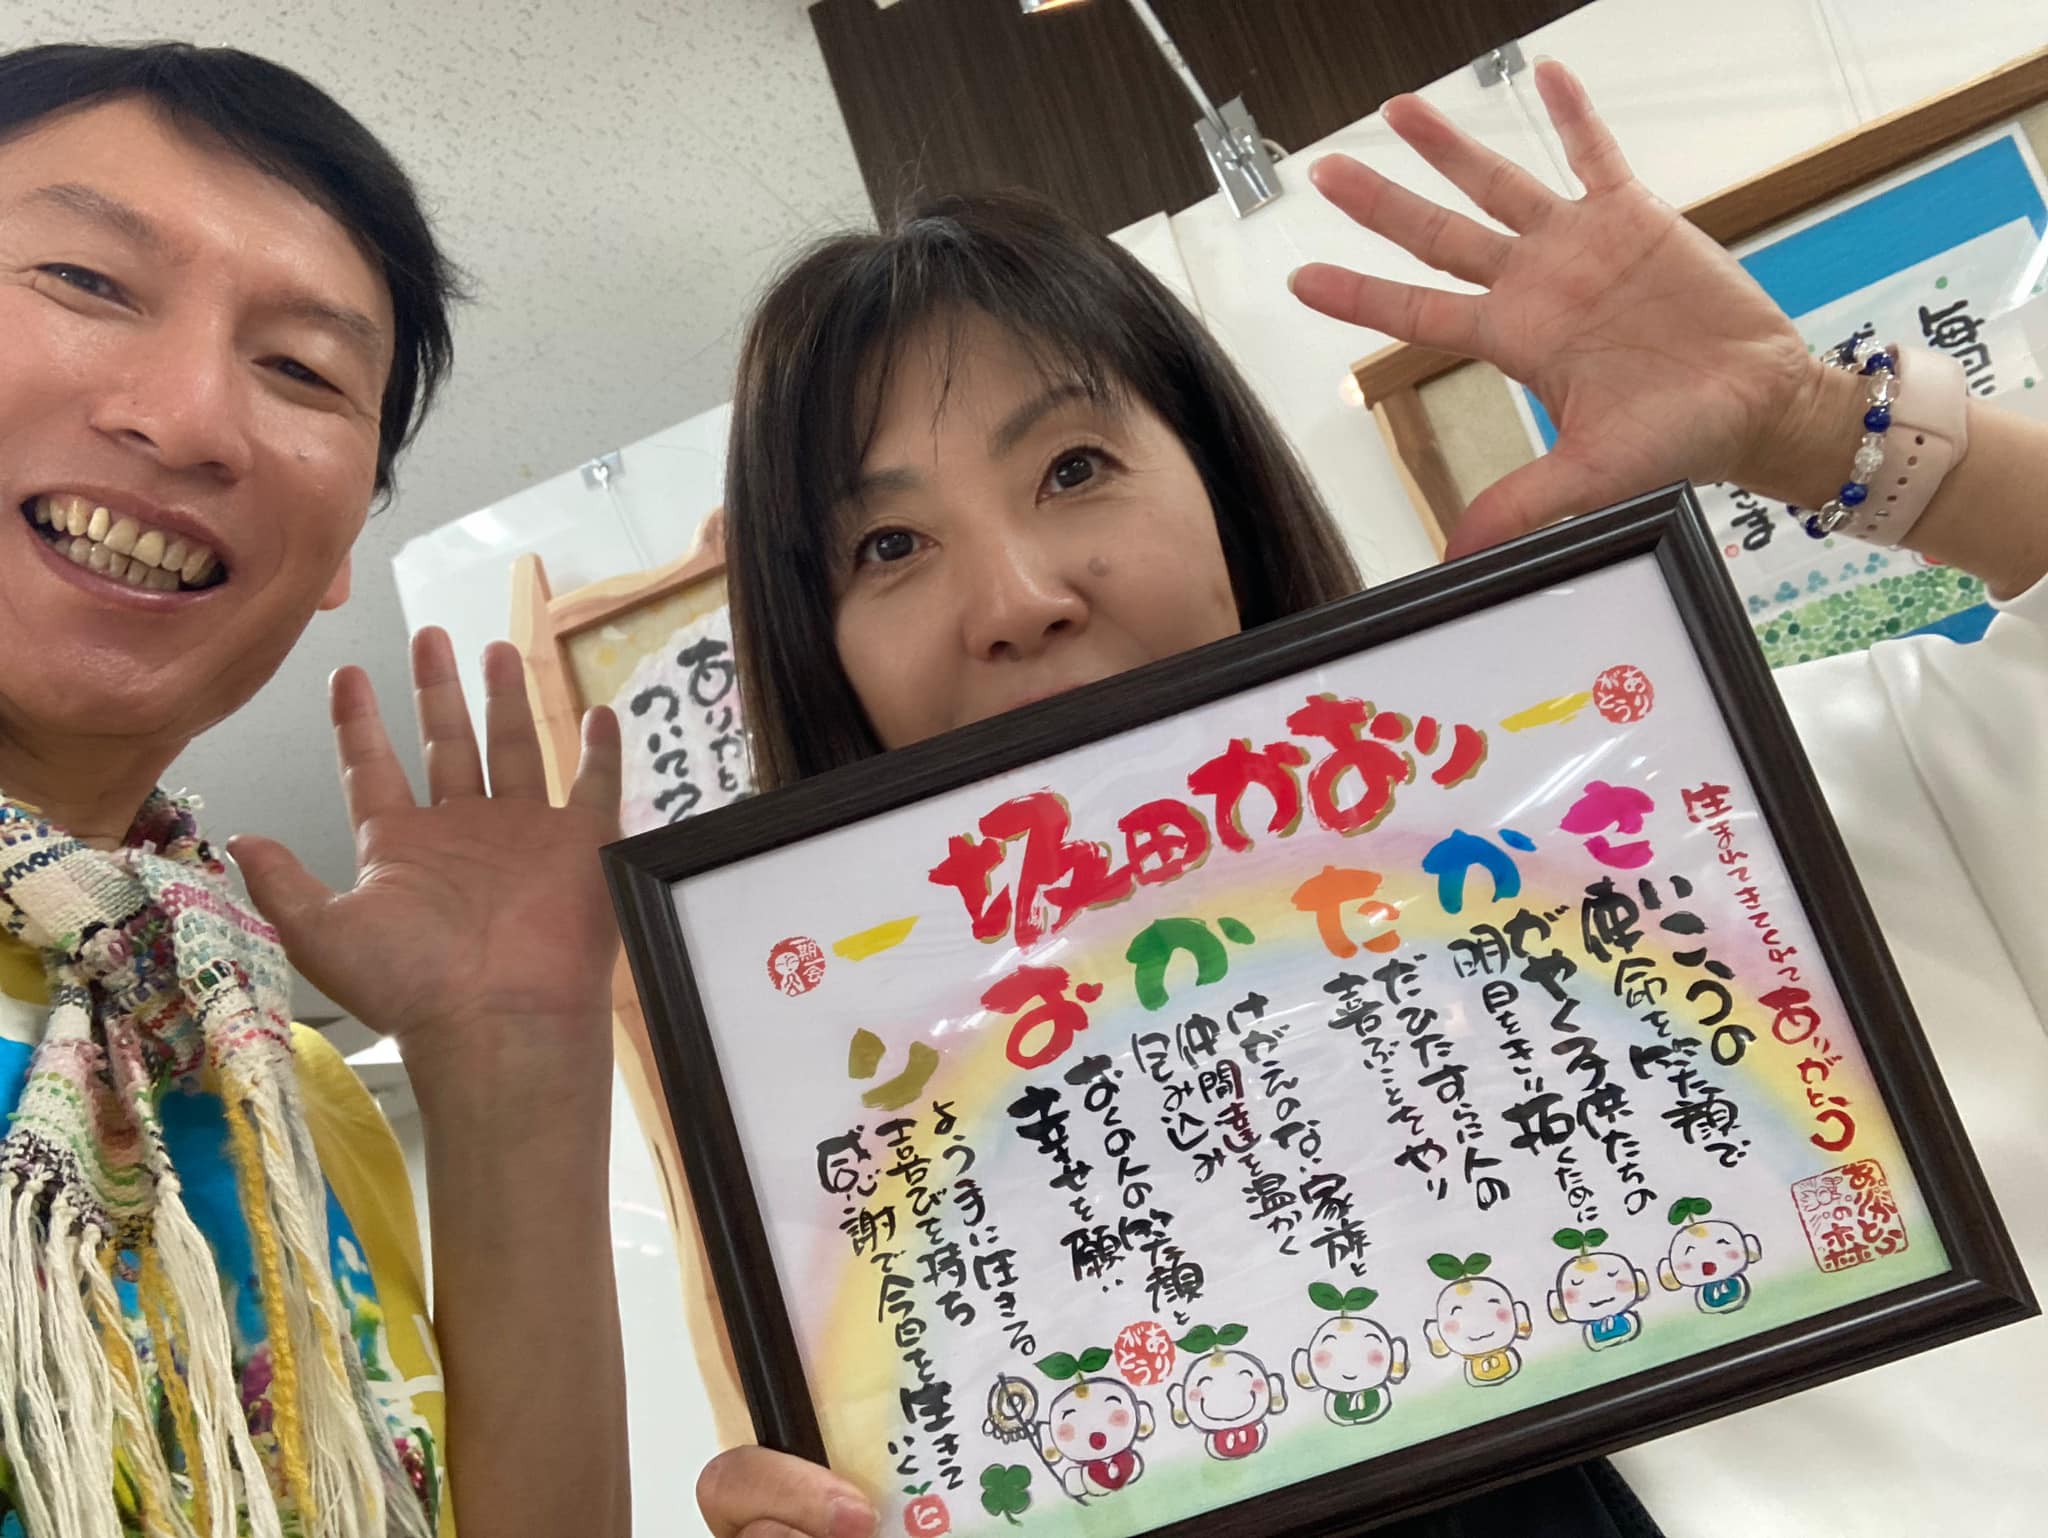 坂田かおり
ありがとう
一期一会
生まれてきてくれてありがとう
さいこうの
使命を笑顔で
かがやく子供たちの
明日をきり拓くために
ただひたすらに人の
喜ぶことをやり
かけがえのない家族と
仲間達を温かく
包み込み
おおくの人の笑顔と
幸せを願い
りようずに生きる
喜びを持ち
感謝で今日を生きていく
ありがとう
ありがとうの森
ありがとう
ついてる
毎日